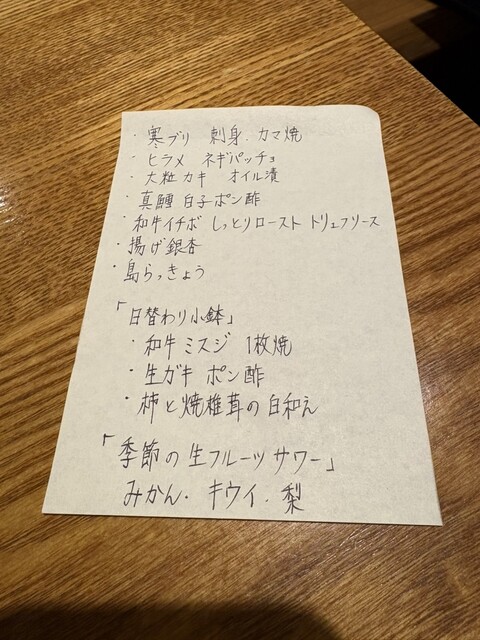 ・寒ブリ 刺身.カマ焼
・ヒラメ ネギパッチョ
・大粒カキ オイル漬
・真鱈白子ポン酢
・和牛イチボ しっとりロースト トリュフソース
・揚げ銀杏
・島らっきょう
「日替わり小鉢」
・和牛ミスジ 1枚焼
・生ガキ ポン酢
・柿と焼椎茸の白和え
「季節の生フルーツサワー」
みかん・キウイ.梨